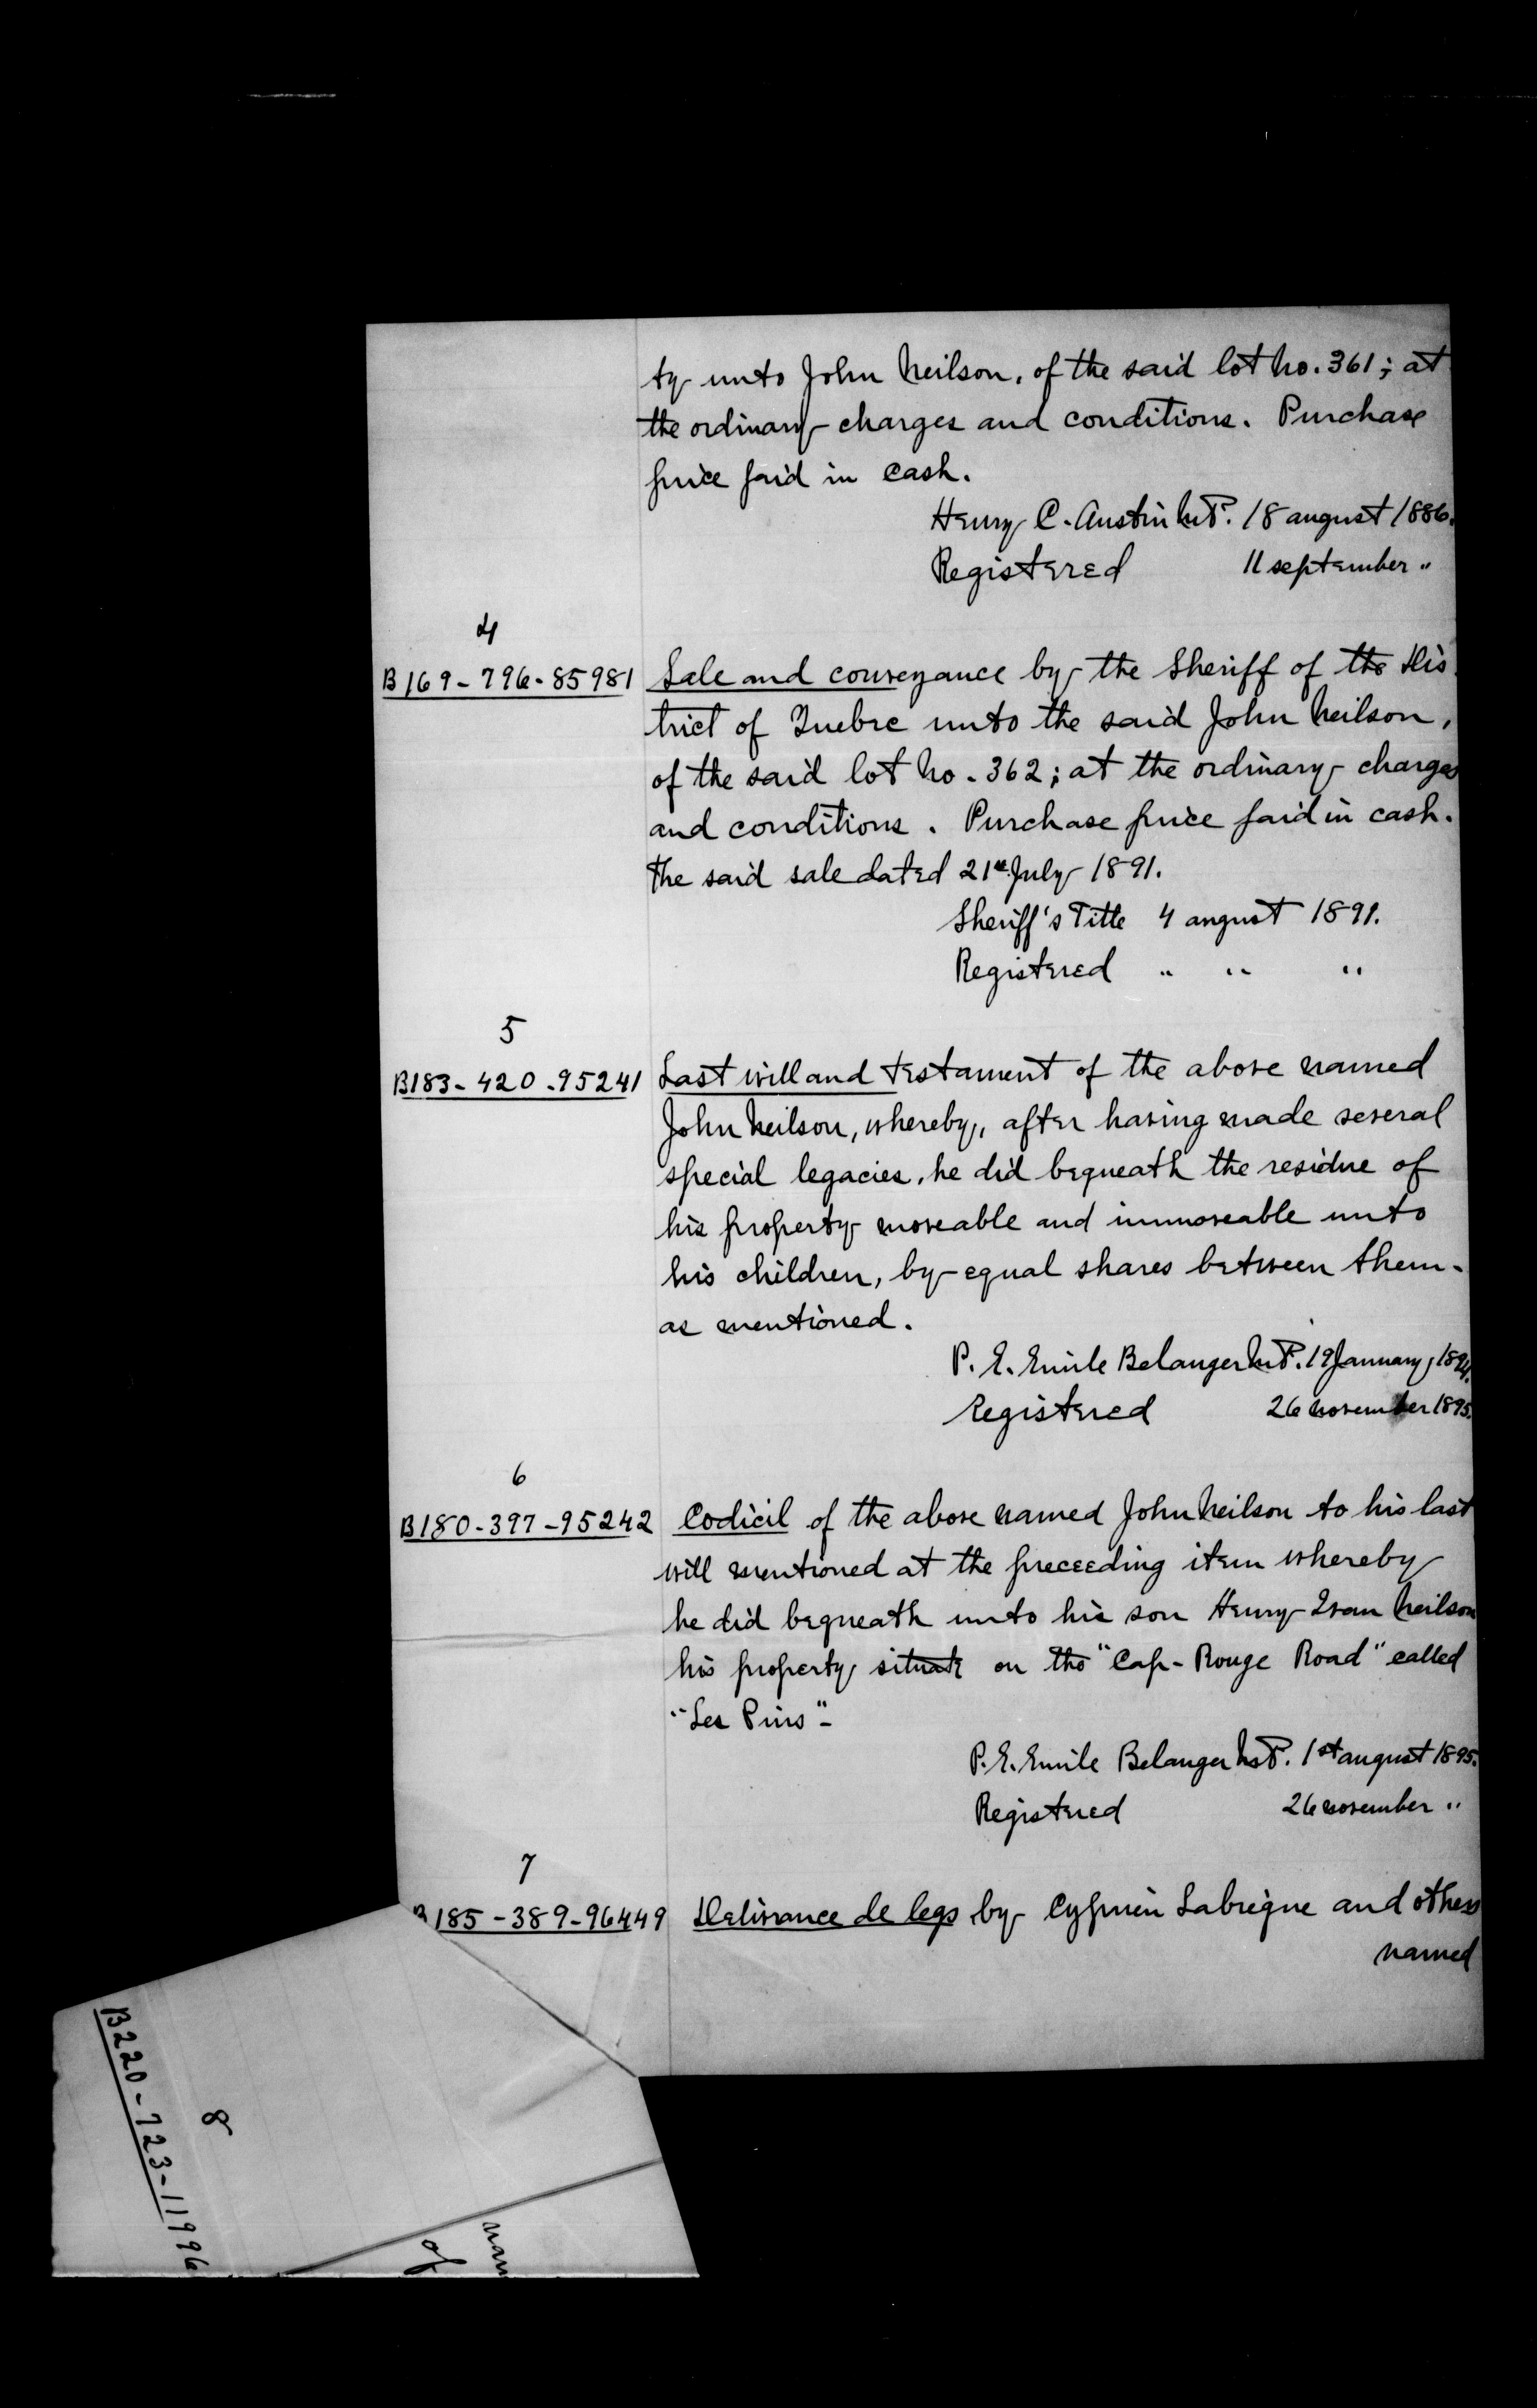 ty unto John Neilson, of the said lot No. 361; at
the ordinary charges and conditions. Purchase
price paid in cash.
Henry C. Austin N.P. 18 august 1886.
Registered 11 september "
4
B169-796-85981 Sale and conveyance by the Sheriff of the Dis
trict of Quebec unto the said John Neilson,
of the said lot No. 362; at the ordinary charges
and conditions. Purchase price paid in cash.
The said sale dated 21st July 1891.
Sheriff's Title 4 august 1891.
Registered " " "
5
B183-420-95241 Last will and testament of the above named
John Neilson, whereby, after having made several
special legacies, he did bequeath the residue of
his property moveable and immoveable unto
his children, by equal shares between them-
as mentioned.
P. E. Emile Belanger N.P. 19 January, 1894.
Registered 26 November 1895.
6
B180-397-95242 Codicil of the above named John Neilson to his last
will mentioned at the preceeding item whereby
he did bequeath unto his son Henry Ivan Neilson
his property, situate on the "Cap-Rouge Road" called
"Les Pins"-
P. E. Emile Belanger N.P. 1st august 1895.
Registered 26 november "
7
B185-389-96449 Delivrance de legs by Cyprien Labrèque and others
named
8
B220-723-11996
nam
of